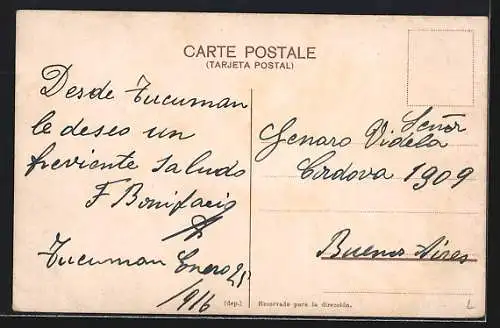 CARTE POSTALE
(TARJETA POSTAL)
Desde Tucuman
le deseo un
freviente saludo
F Bonifacio
Tucuman Enero 25
1916
Señor
Genaro Videla
Cordova 1909
Buenos Aires
(dep.)
Reservado para la dirección.
L